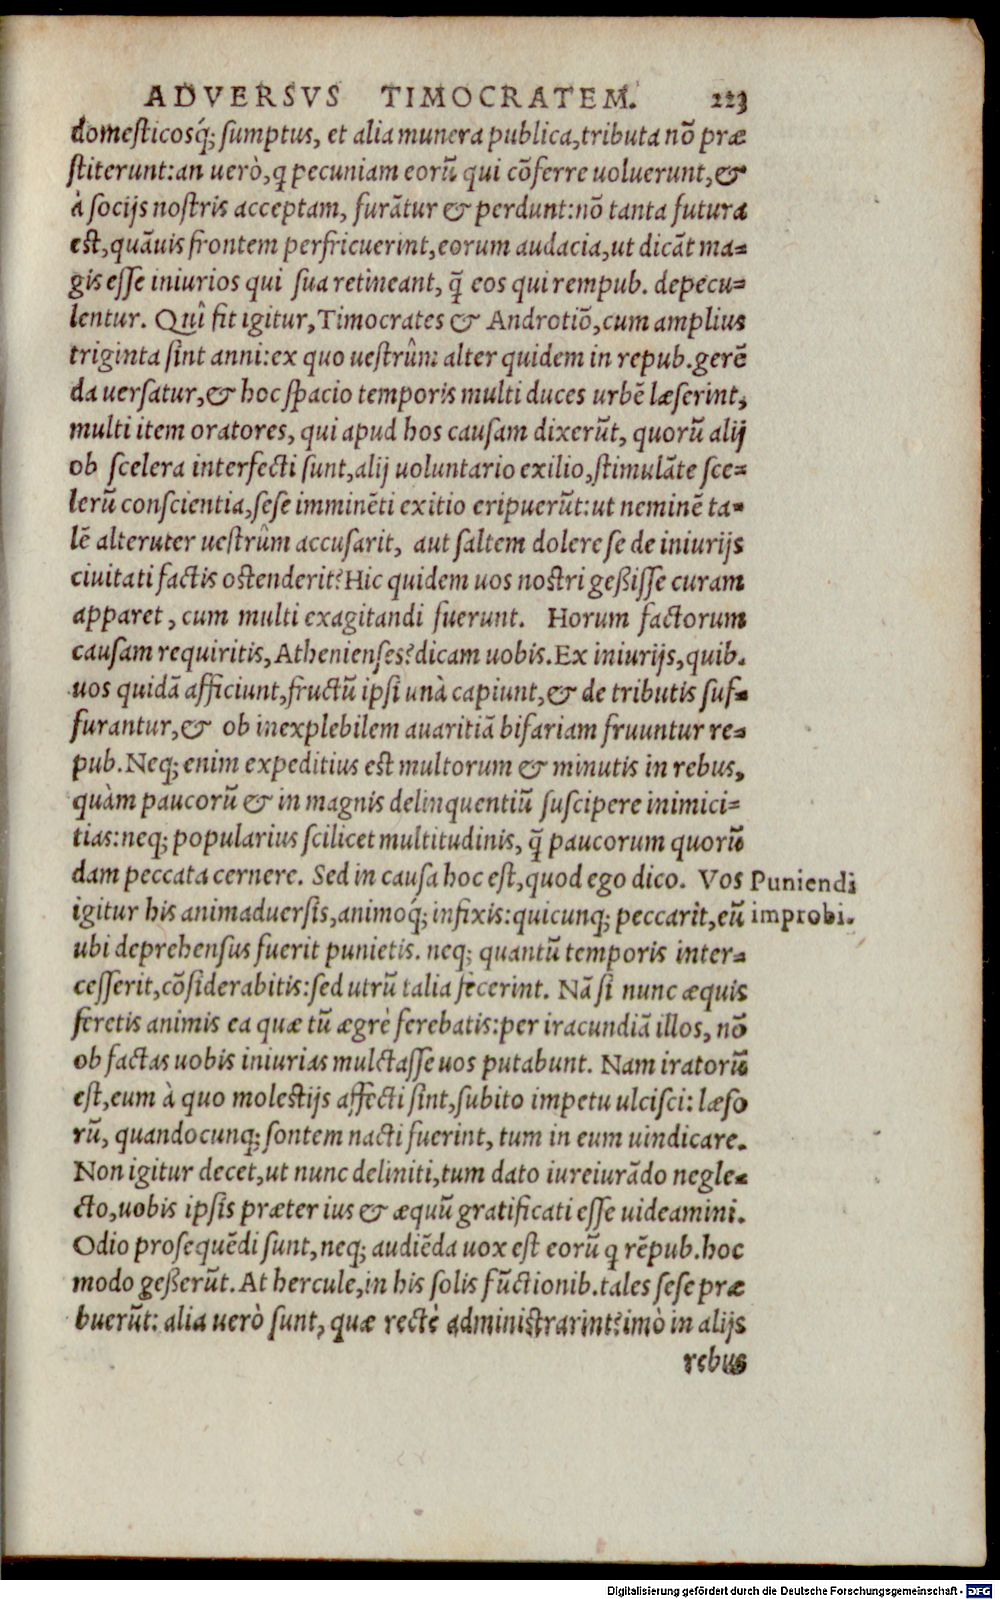 ADVERSVS TIMOCRATEM. 223
domesticosq́; sumptus, et alia munera publica, tributa nō præ
stiterunt: an uerò, q pecuniam eorū qui cōferre uoluerunt, &
à socijs nostris acceptam, furātur & perdunt: nō tanta futura
est, quāuis frontem perfricuerint, eorum audacia, ut dicāt ma=
gis esse iniurios qui sua retineant, q̄ eos qui rempub. depecu=
lentur. Quî fit igitur, Timocrates & Androtiō, cum amplius
triginta sint anni: ex quo uestrûm alter quidem in repub. gerē
da uersatur, & hoc spacio temporis multi duces urbē læserint,
multi item oratores, qui apud hos causam dixerūt, quorū alij
ob scelera interfecti sunt, alij uoluntario exilio, stimulāte sce=
lerū conscientia, sese imminēti exitio eripuerūt: ut neminē ta=
lē alteruter uestrûm accusarit, aut saltem dolere se de iniurijs
ciuitati factis ostenderit? Hic quidem uos nostri geßisse curam
apparet, cum multi exagitandi fuerunt. Horum factorum
causam requiritis, Athenienses? dicam uobis. Ex iniurijs, quib.
uos quidā afficiunt, fructū ipsi unà capiunt, & de tributis suf=
furantur, & ob inexplebilem auaritiā bifariam fruuntur re=
pub. Neq; enim expeditius est multorum & minutis in rebus,
quàm paucorū & in magnis delinquentiū suscipere inimici=
tias: neq; popularius scilicet multitudinis, q̄ paucorum quorū
dam peccata cernere. Sed in causa hoc est, quod ego dico. Vos Puniendi
igitur his animaduersis, animoq́; infixis: quicunq; peccarit, eū improbi.
ubi deprehensus fuerit punietis. neq; quantū temporis inter=
cesserit, cōsiderabitis: sed utrū talia fecerint. Nā si nunc æquis
feretis animis ea quæ tū ægrè ferebatis: per iracundiā illos, nō
ob factas uobis iniurias mulctasse uos putabunt. Nam iratorū
est, eum à quo molestijs affecti sint, subito impetu ulcisci: læso
rū, quandocunq; sontem nacti fuerint, tum in eum uindicare.
Non igitur decet, ut nunc deliniti, tum dato iureiurādo negle=
cto, uobis ipsis præter ius & æquū gratificati esse uideamini.
Odio prosequēdi sunt, neq; audiēda uox est eorū q rēpub. hoc
modo geßerūt. At hercule, in his solis fūctionib. tales sese præ
buerūt: alia uerò sunt, quæ rectè administrarint? imò in alijs
rebus
Digitalisierung gefördert durch die Deutsche Forschungsgemeinschaft - DFG